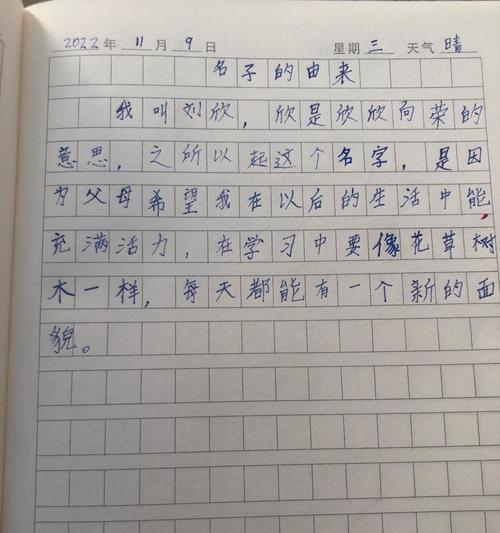 2022年 11月 9日 星期 三 天气 晴
名子的由来
我叫刘欣，欣是欣欣向荣的
意思，之所以起这个名字，是因
为父母希望我在以后的生活中能
充满活力，在学习中要像花草树
木一样，每天都能有一个新的面
貌。